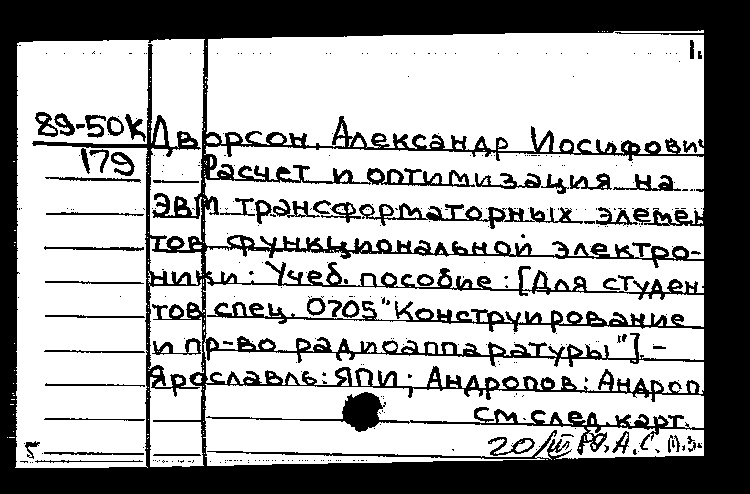 1.
89-50К Дворсон, Александр Иосифович
179 Расчет и оптимизация на
ЭВМ трансформаторных элемен
тов функциональной электро-
ники: Учеб. пособие: [Для студен-
тов спец. 0705 "Конструирование
и пр-во радиоаппаратуры"] -
Ярославль: ЯПИ; Андропов: Андроп.
см. след. карт.
5 20/III 89. А.С. м.з.